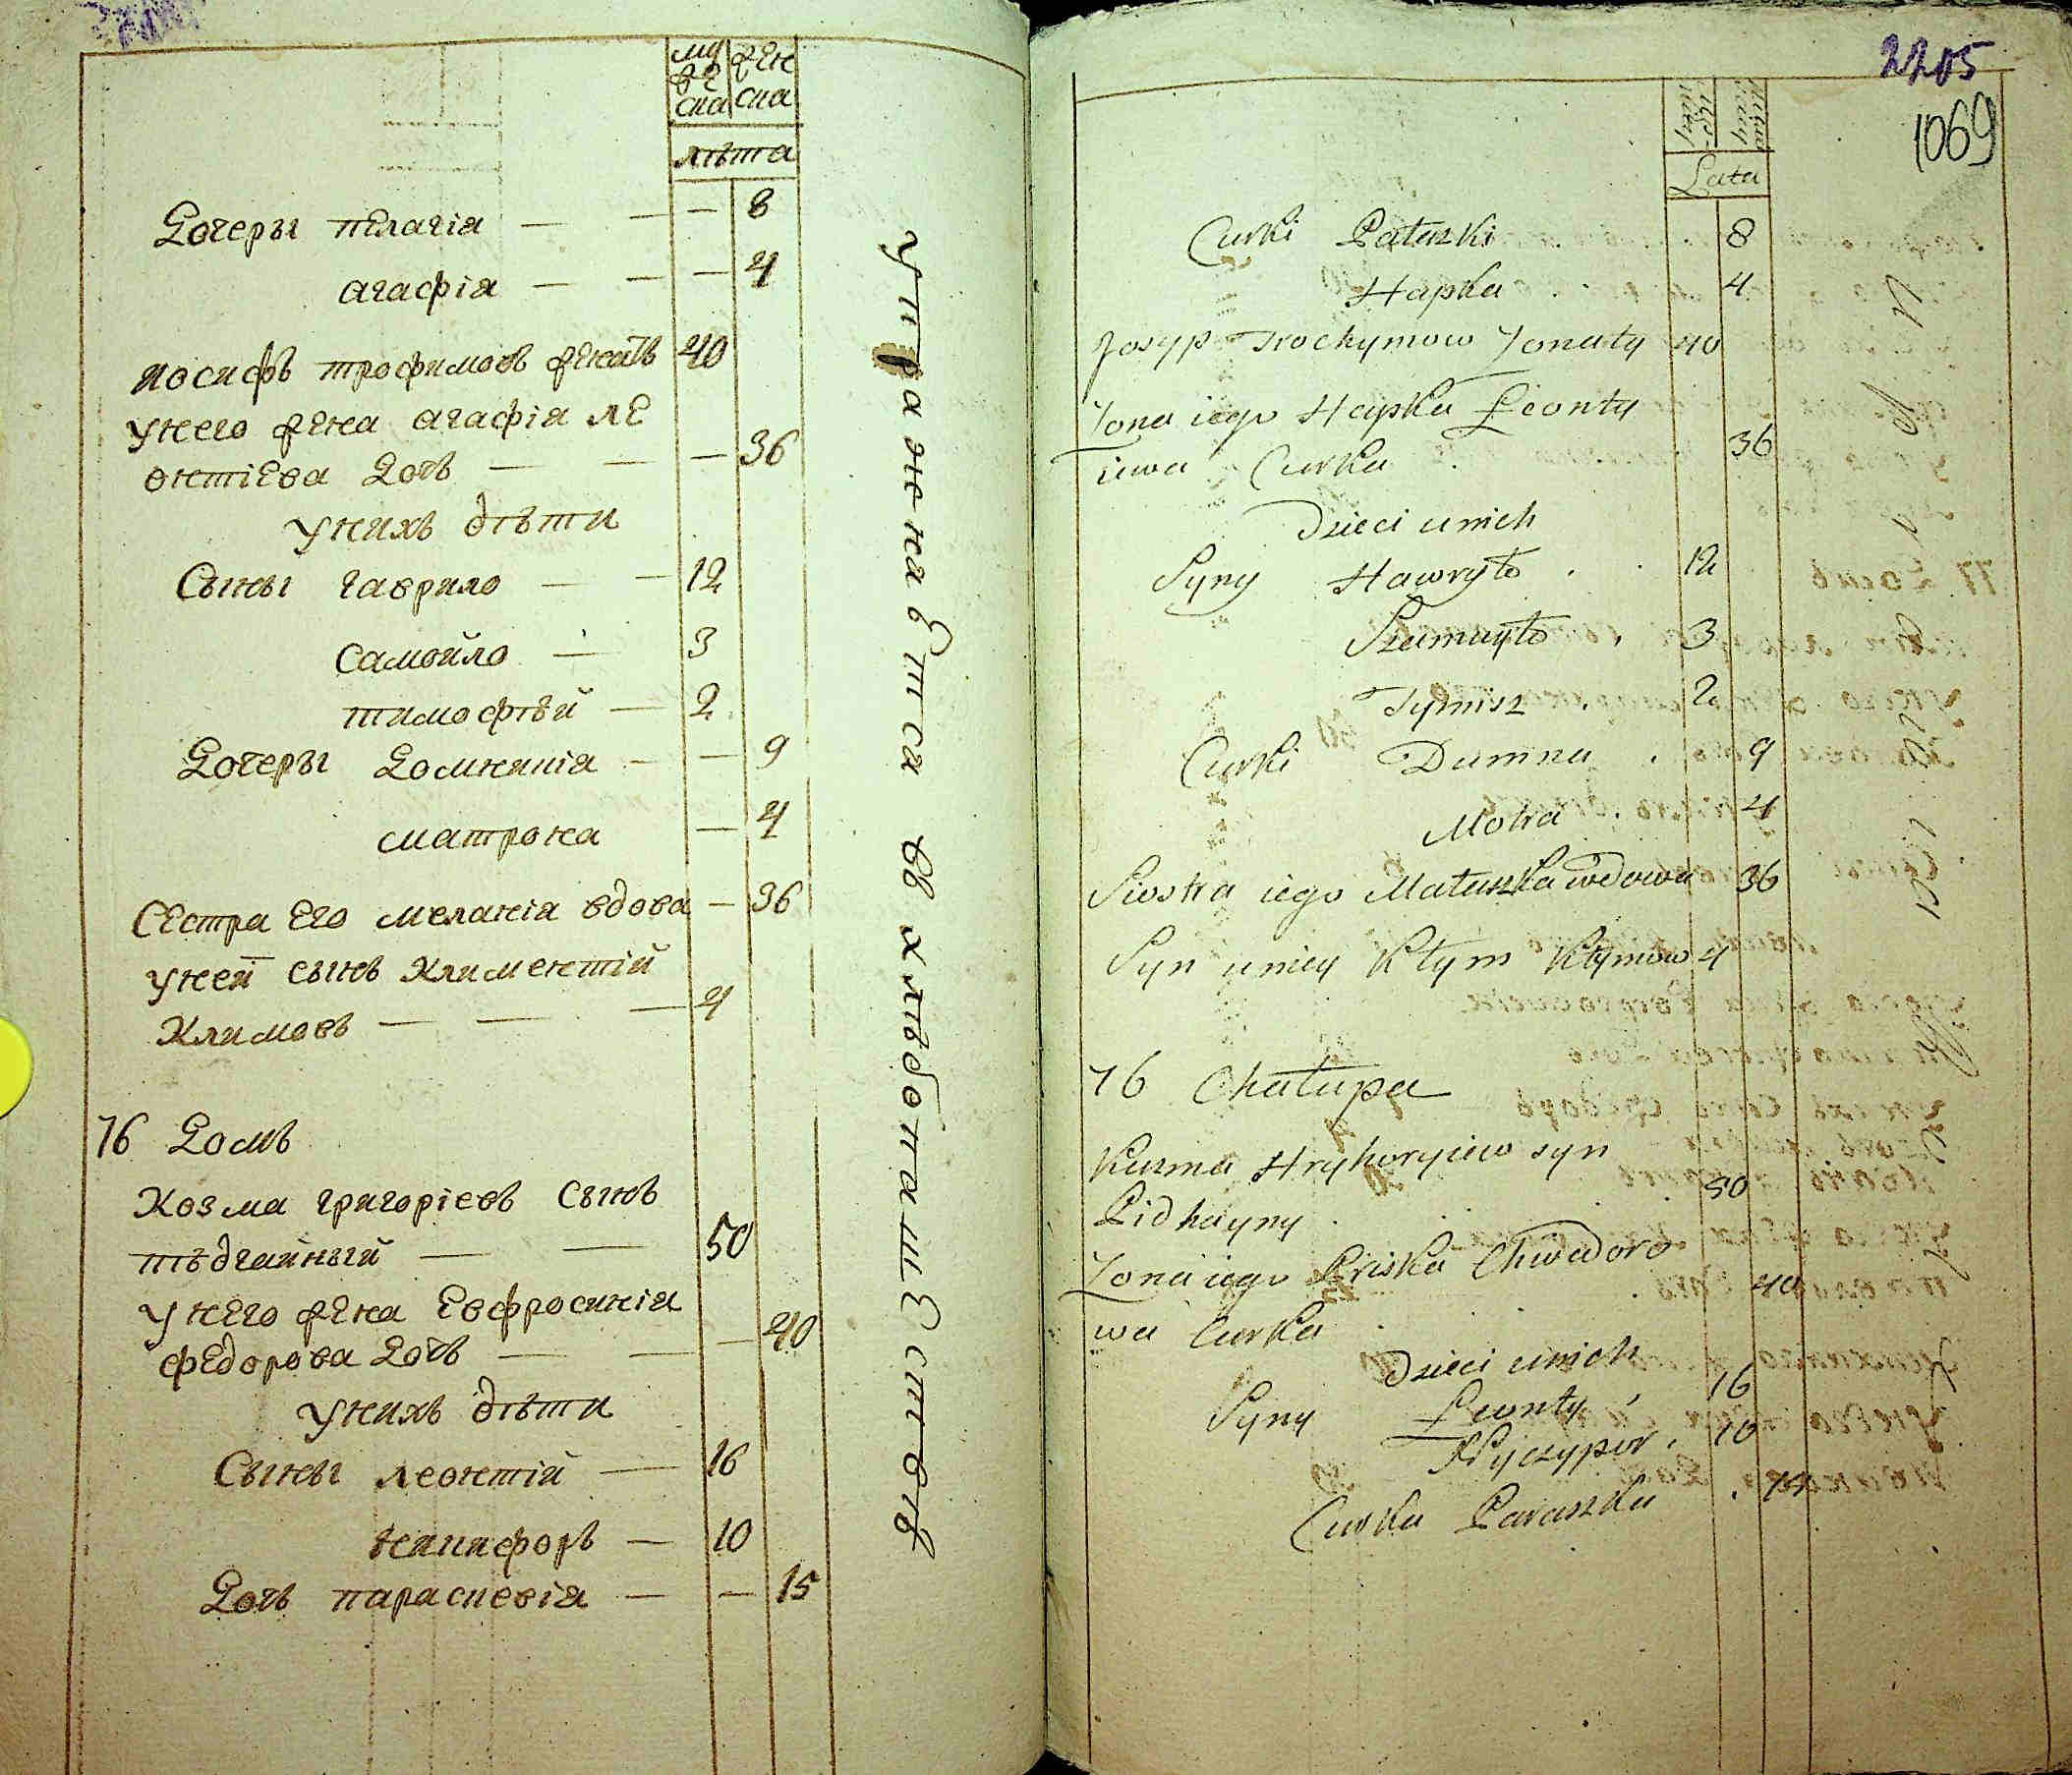 муже ска
жен ска
лѣта
Дочеры пелагіа — — — 8
агафіа — — — 4
иосифъ трофимовъ женатъ 40
унего жена агафіа ле
онтіева дочь — — — 36
унихъ дѣти
Сыны гаврило — — 12
самойло — 3
тимофѣй — 2
Дочеры Домникіа — — 9
матрона — 4
Сестра Его меланіа вдова — 36
уней сынъ Климентій
Климовъ — — — 4
76 Домъ
Козма григоріевъ Сынъ
пѣдгайный — — 50
унего жена Евфросиніа
федорова Дочь — — — 40
унихъ дѣти
Сыны леонтій — 16
никифоръ — 10
Дочь параскевіа — — 15
упражняется въ хлѣбопашествѣ
2205
1069
Lata
Curki Pałaszki 8
Hapka 4
Josyp Trochymow Zonaty 40
Zona iego Hapka Leonty
iewa Curka 36
Dzieci unich
Syny Hawryło 12
Szamuyło 3
Tymisz 2
Curki Dumna 9
Motra 4
Siostra iego Małaszka wdowa 36
Syn uniey Kłym Kłymow 4
76 Chałupa
Kuzma Hryhoryiew syn
Pidhayny 50
Zona iego Priska Chwedoro
wa Curka 40
Dzieci unich
Syny Leonty 16
Nyczypor 10
Curka Paraszka 15